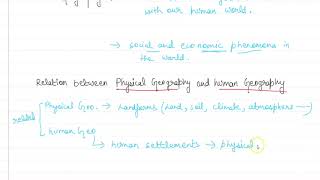 with our human world.
→ social and economic phenomena in
the world.
Relation between Physical Geography and human Geography
related Physical Geo. → landforms (land, soil, climate, atmosphere —)
human Geo
→ human settlements → physical